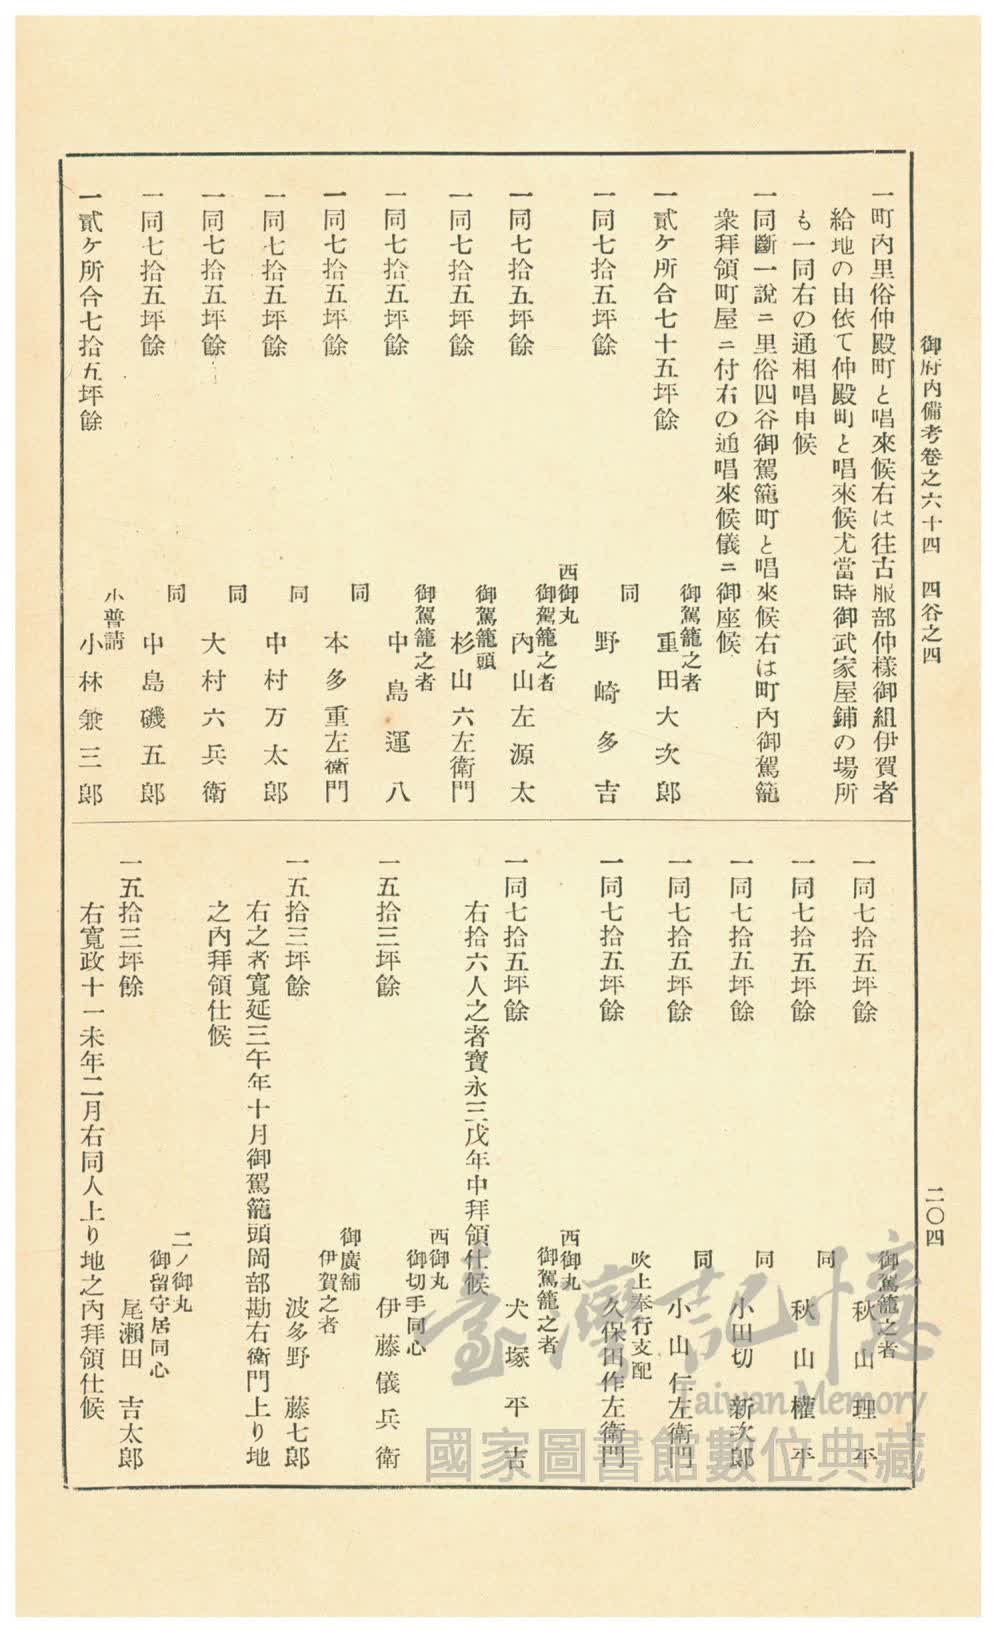 御府内備考卷之六十四 四谷之四
二〇四
一町內里俗仲殿町と唱來候右は往古服部仲樣御組伊賀者
給地の由依て仲殿町と唱來候尤當時御武家屋鋪の場所
も一同右の通相唱申候
一同斷一說ニ里俗四谷御駕籠町と唱來候右は町內御駕籠
衆拜領町屋ニ付右の通唱來候儀ニ御座候
御駕籠之者
一貳ケ所合七十五坪餘 重田大次郎
同
一同七拾五坪餘 野崎多吉
西御丸
御駕籠之者
一同七拾五坪餘 內山左源太
御駕籠頭
一同七拾五坪餘 杉山六左衞門
御駕籠之者
一同七拾五坪餘 中島運八
同
一同七拾五坪餘 本多重左衞門
同
一同七拾五坪餘 中村万太郎
同
一同七拾五坪餘 大村六兵衞
同
一同七拾五坪餘 中島磯五郎
小普請
一貳ケ所合七拾五坪餘 小林兼三郎
御駕籠之者
一同七拾五坪餘 秋山理平
同
一同七拾五坪餘 秋山權平
同
一同七拾五坪餘 小田切新次郎
同
一同七拾五坪餘 小山仁左衞門
吹上奉行支配
一同七拾五坪餘 久保田作左衞門
西御丸
御駕籠之者
一同七拾五坪餘 犬塚平吉
右拾六人之者寶永三戊年中拜領仕候
西御丸
御切手同心
一五拾三坪餘 伊藤儀兵衞
御廣舖
伊賀之者
一五拾三坪餘 波多野藤七郎
右之者寬延三午年十月御駕籠頭岡部勘右衞門上り地
之內拜領仕候
二ノ御丸
御留守居同心
一五拾三坪餘 尾瀨田吉太郎
右寬政十一未年二月右同人上り地之內拜領仕候
臺灣記憶
Taiwan Memory
國家圖書館數位典藏